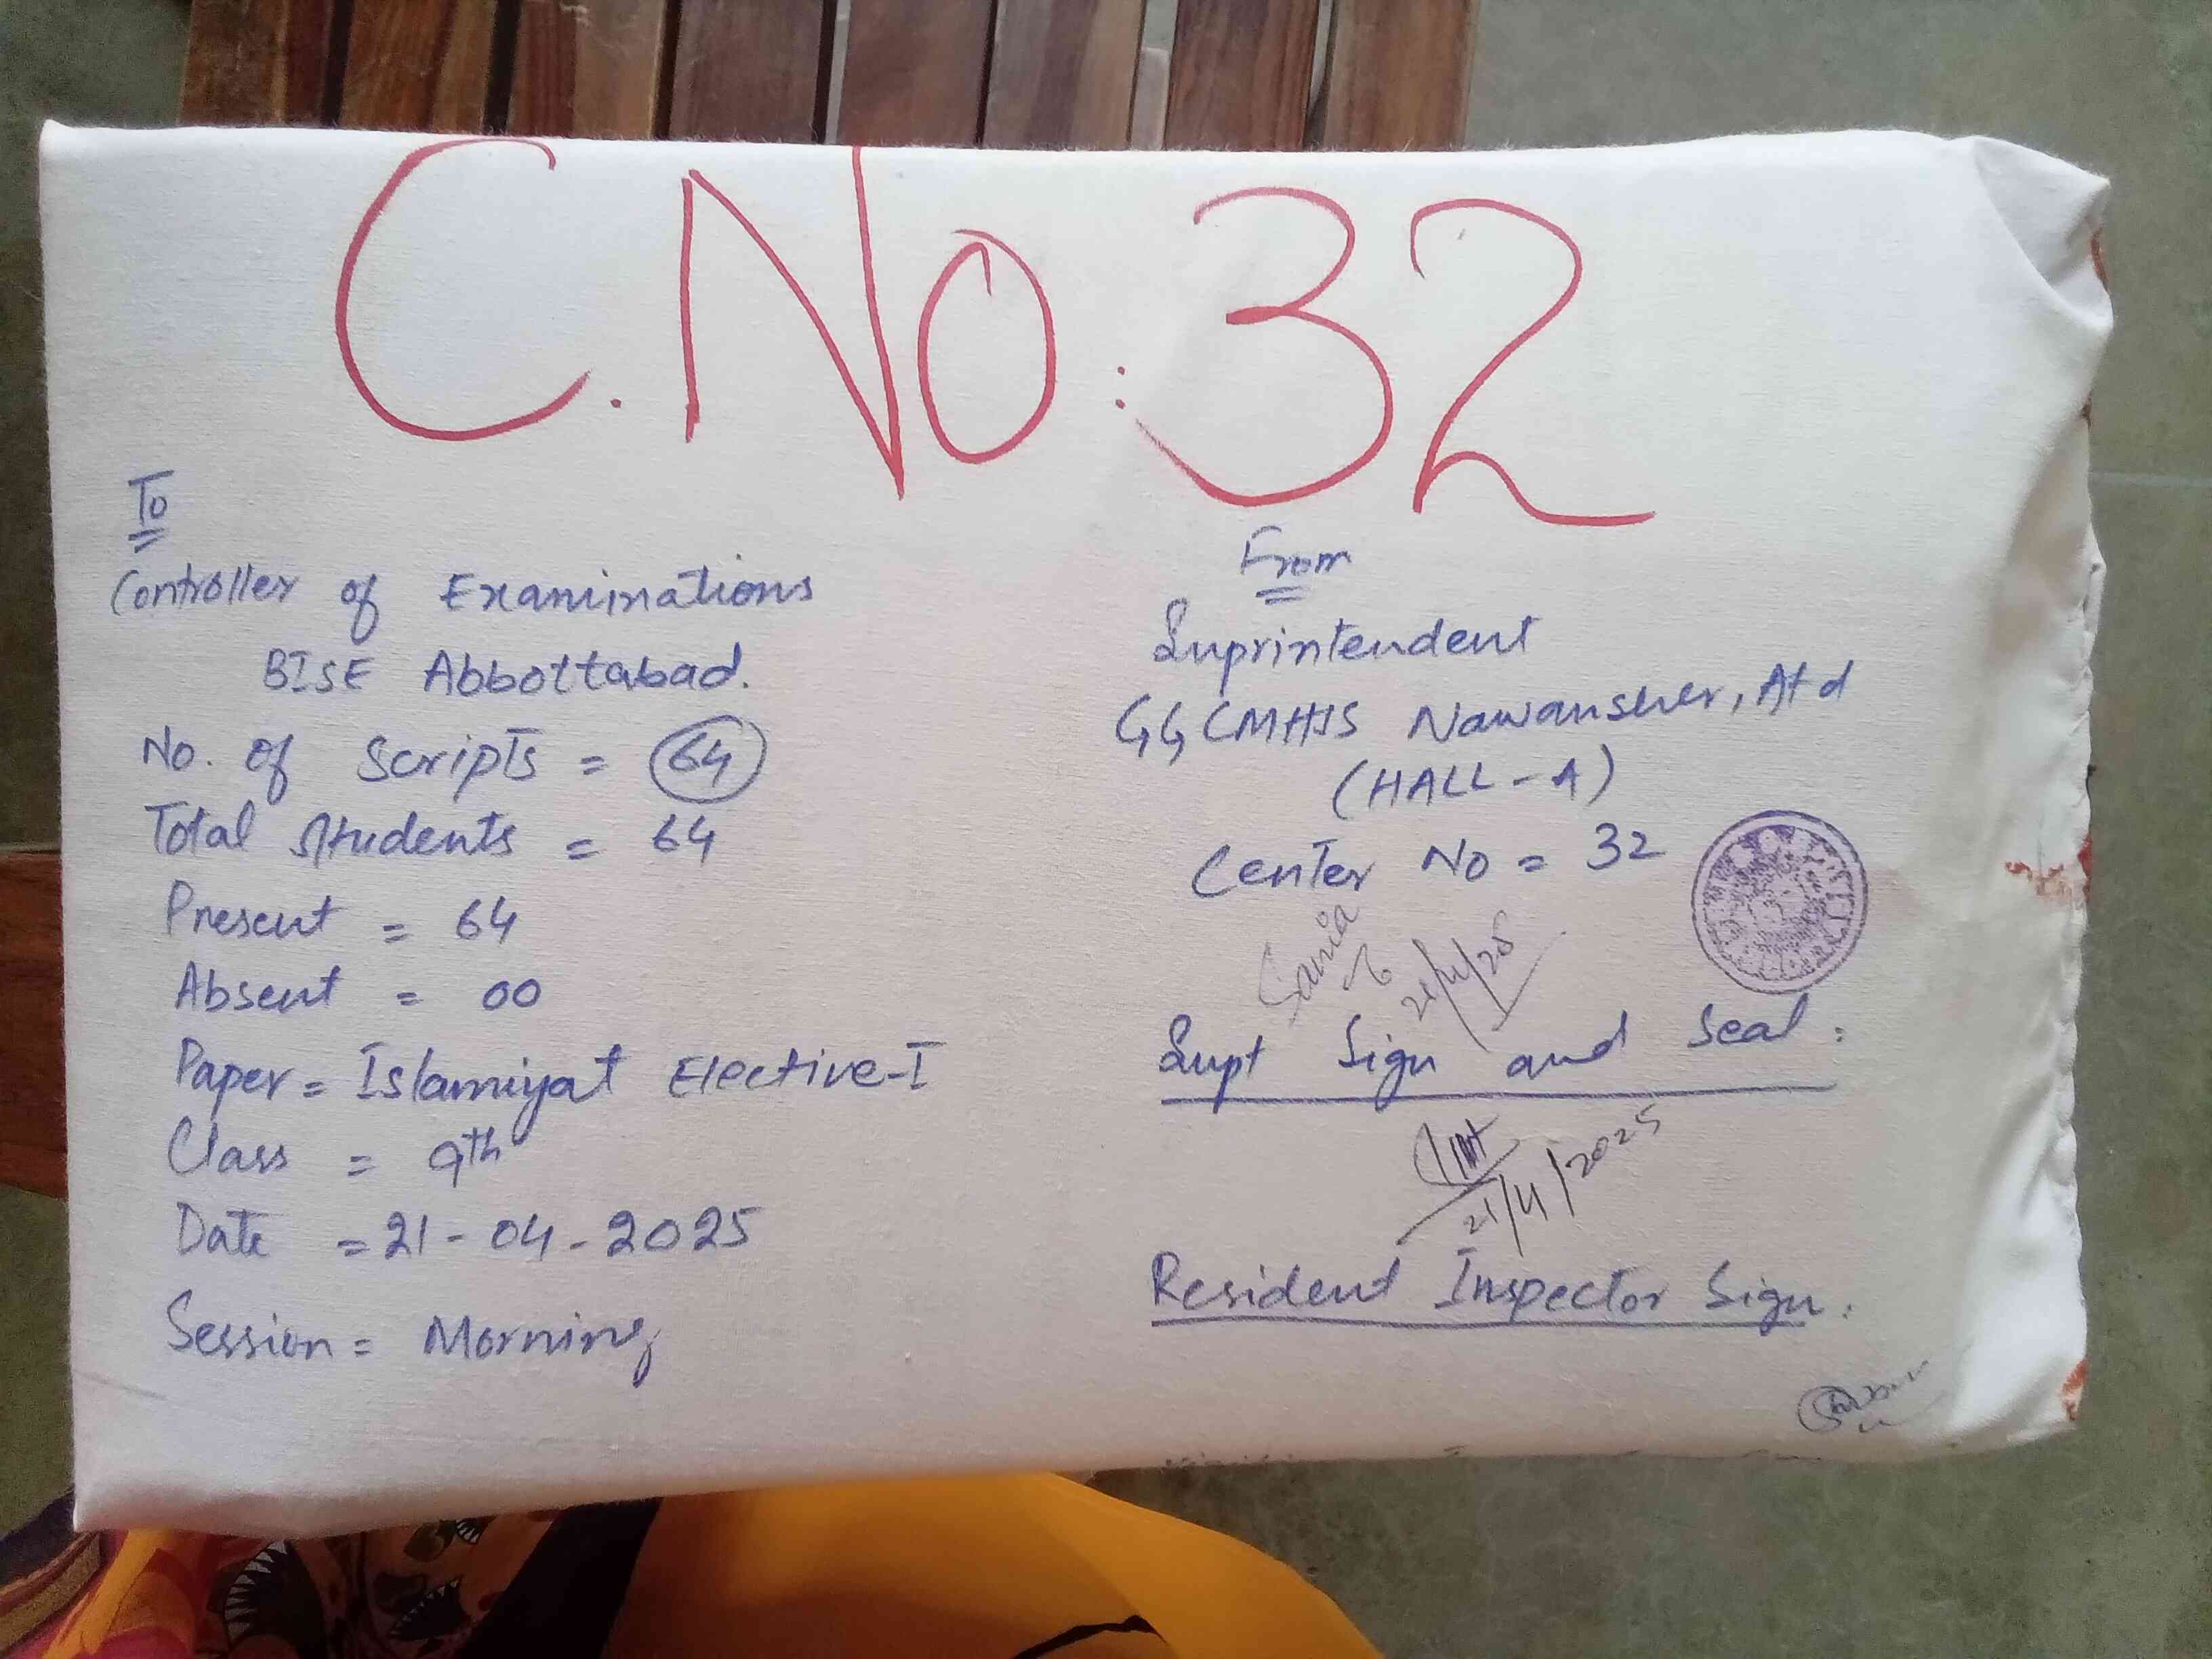 C.No:32
To
Controller of Examinations
BISE Abbottabad.
No. of Scripts = 64
Total Students = 64
Present = 64
Absent = 00
Paper = Islamiyat Elective-I
Class = 9th
Date = 21-04-2025
Session = Morning
From
Suprintendent
GGCMHSS Nawansher, Atd
(HALL-A)
Center No = 32
Sania
21/4/25
Supt Sign and Seal:
21/4/2025
Resident Inspector Sign: